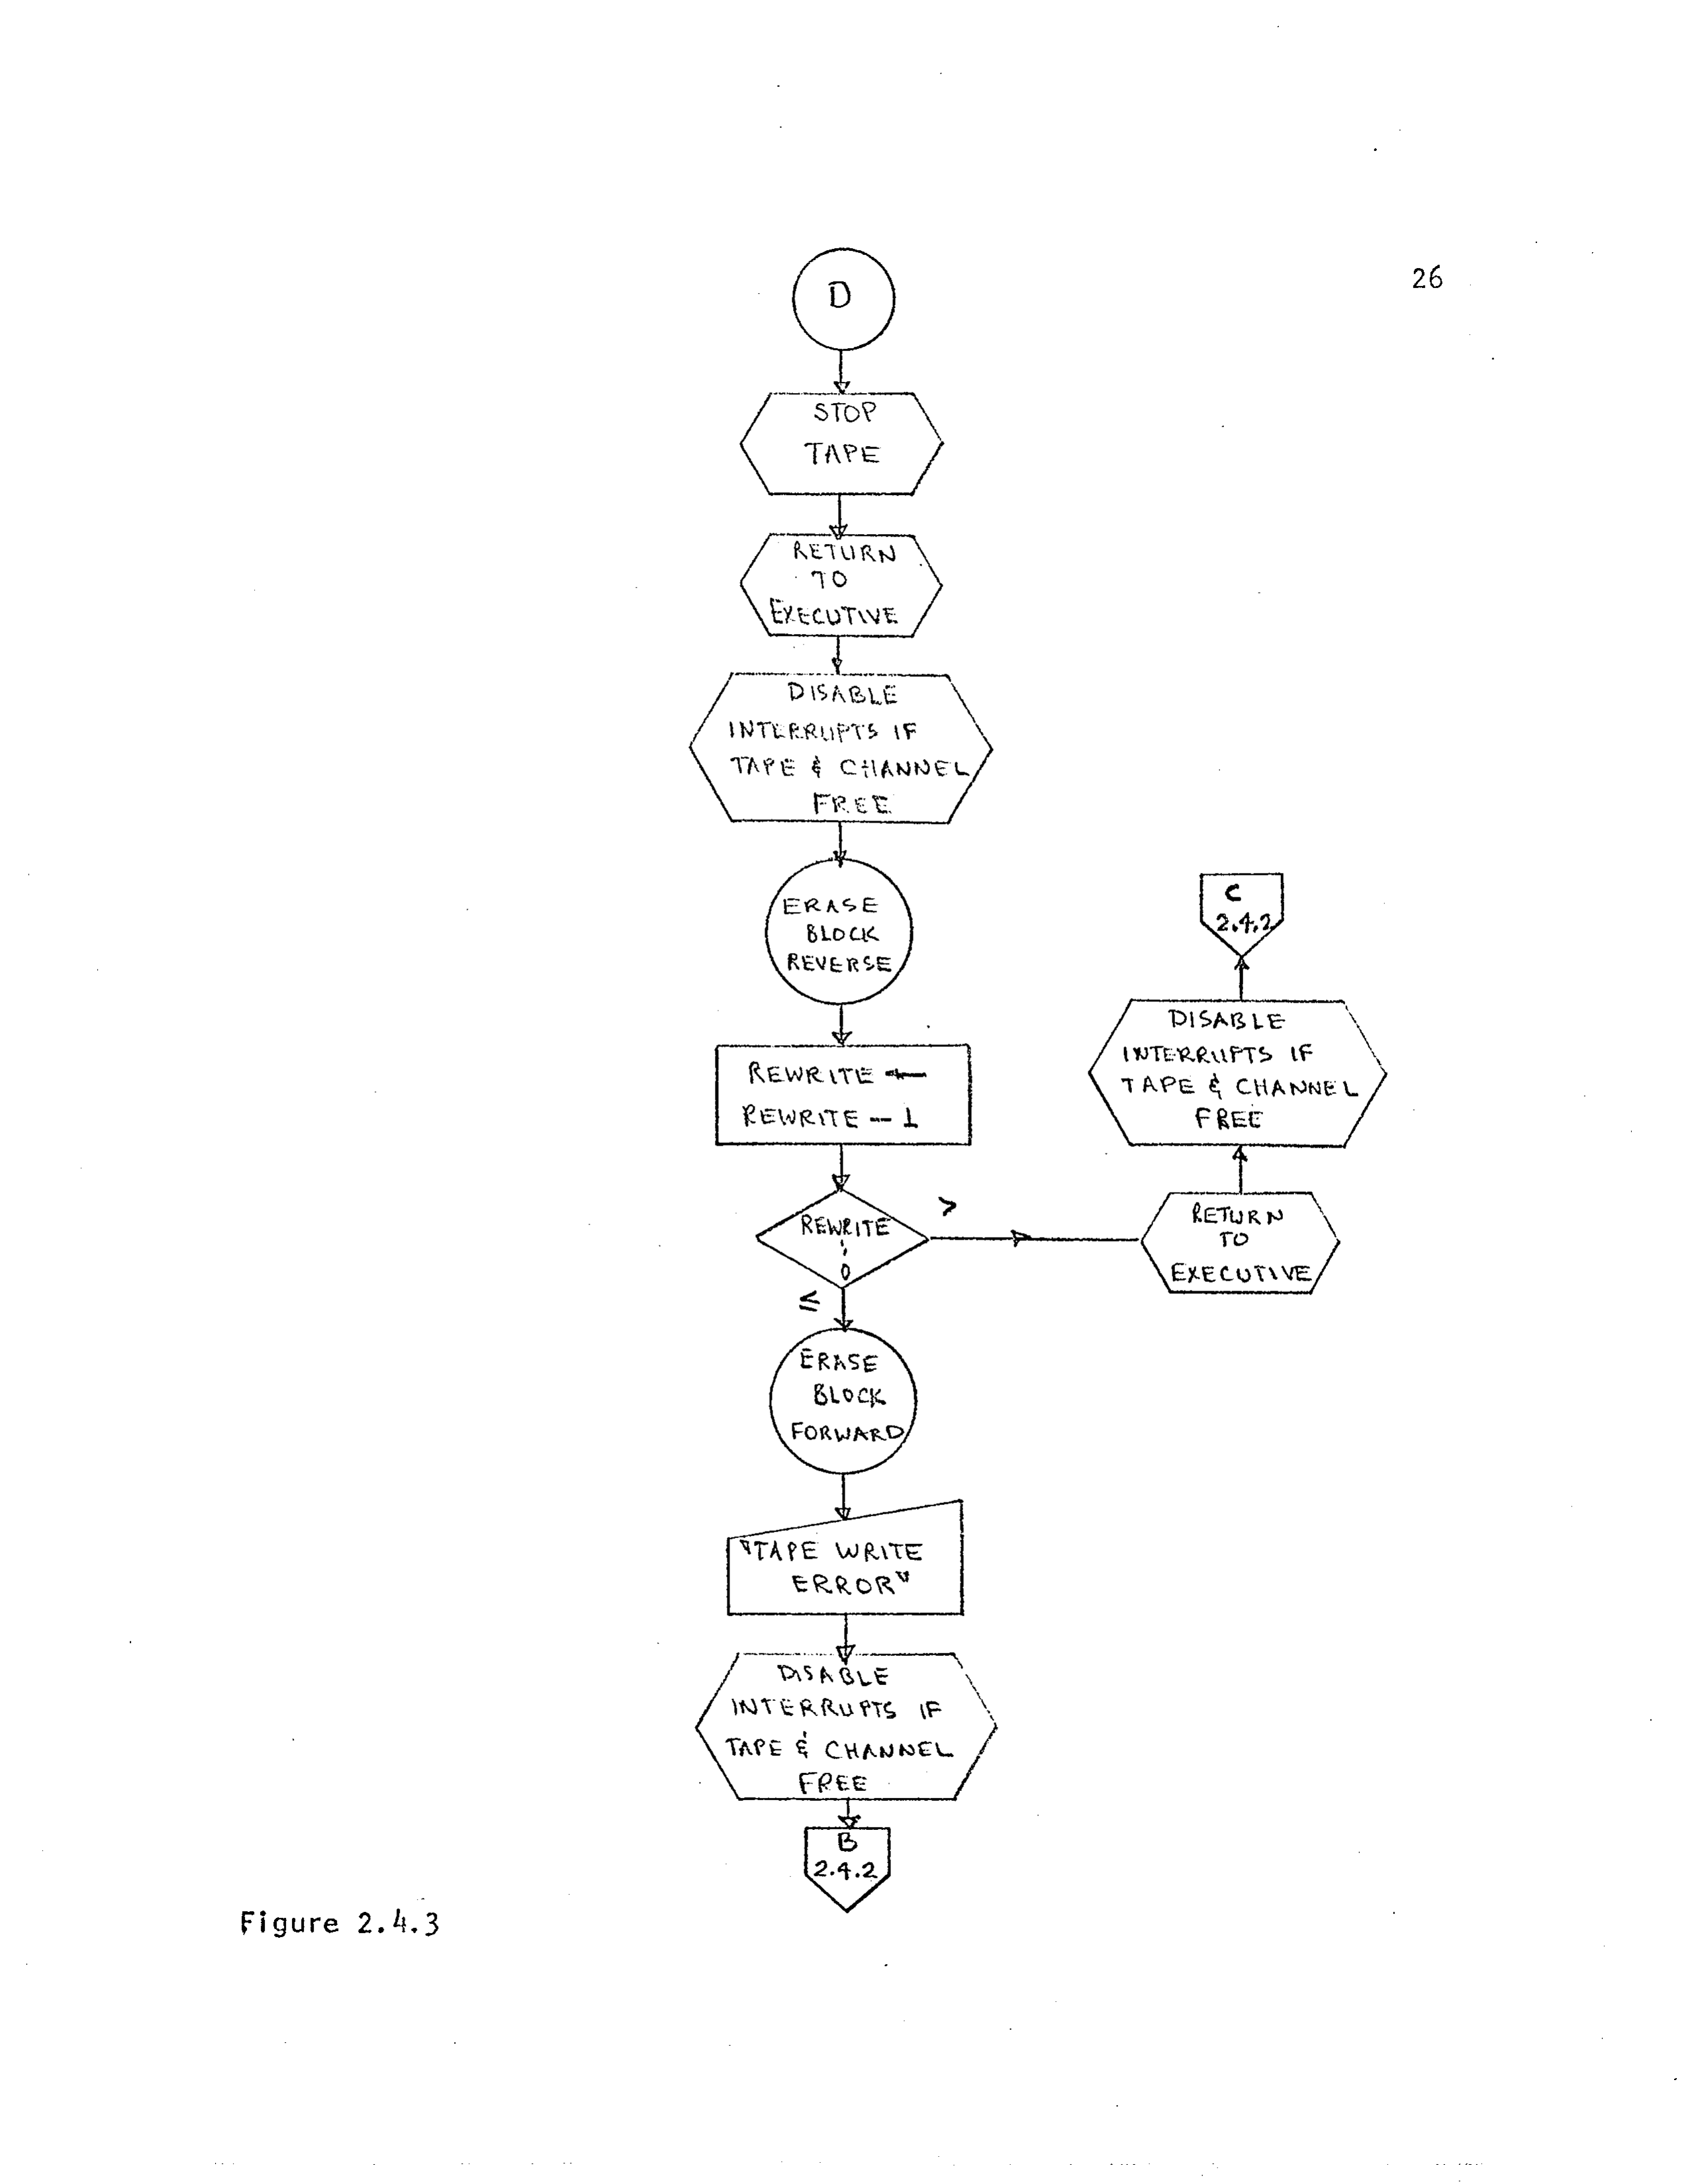 26
D
STOP
TAPE
RETURN
TO
EXECUTIVE
DISABLE
INTERRUPTS IF
TAPE & CHANNEL
FREE
ERASE
BLOCK
REVERSE
REWRITE ←
REWRITE - 1
REWRITE
:
0
>
≤
RETURN
TO
EXECUTIVE
DISABLE
INTERRUPTS IF
TAPE & CHANNEL
FREE
C
2.4.2
ERASE
BLOCK
FORWARD
"TAPE WRITE
ERROR"
DISABLE
INTERRUPTS IF
TAPE & CHANNEL
FREE
B
2.4.2
Figure 2.4.3